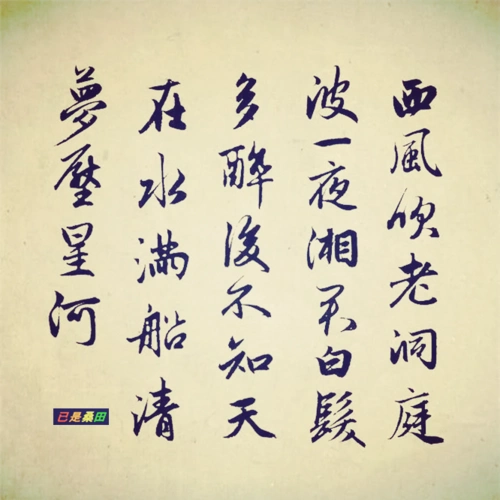 西風吹老洞庭
波一夜湘君白髮
多醉後不知天
在水滿船清
夢壓星河
已是桑田